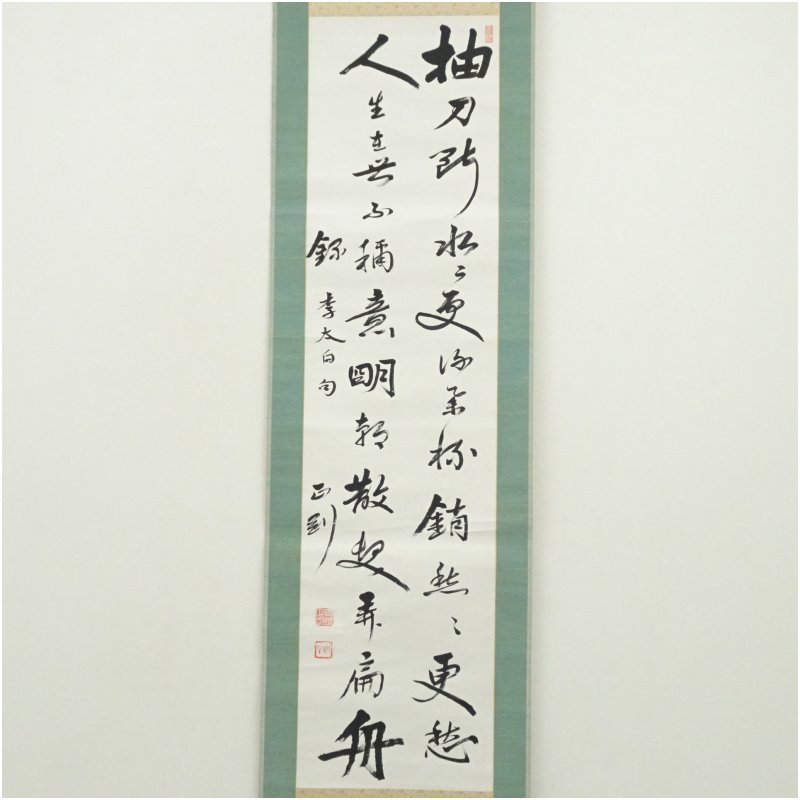 抽刀断水〻更流挙杯銷愁〻更愁
人生在世不稱意明朝散髪弄扁舟
録李太白句 正剛